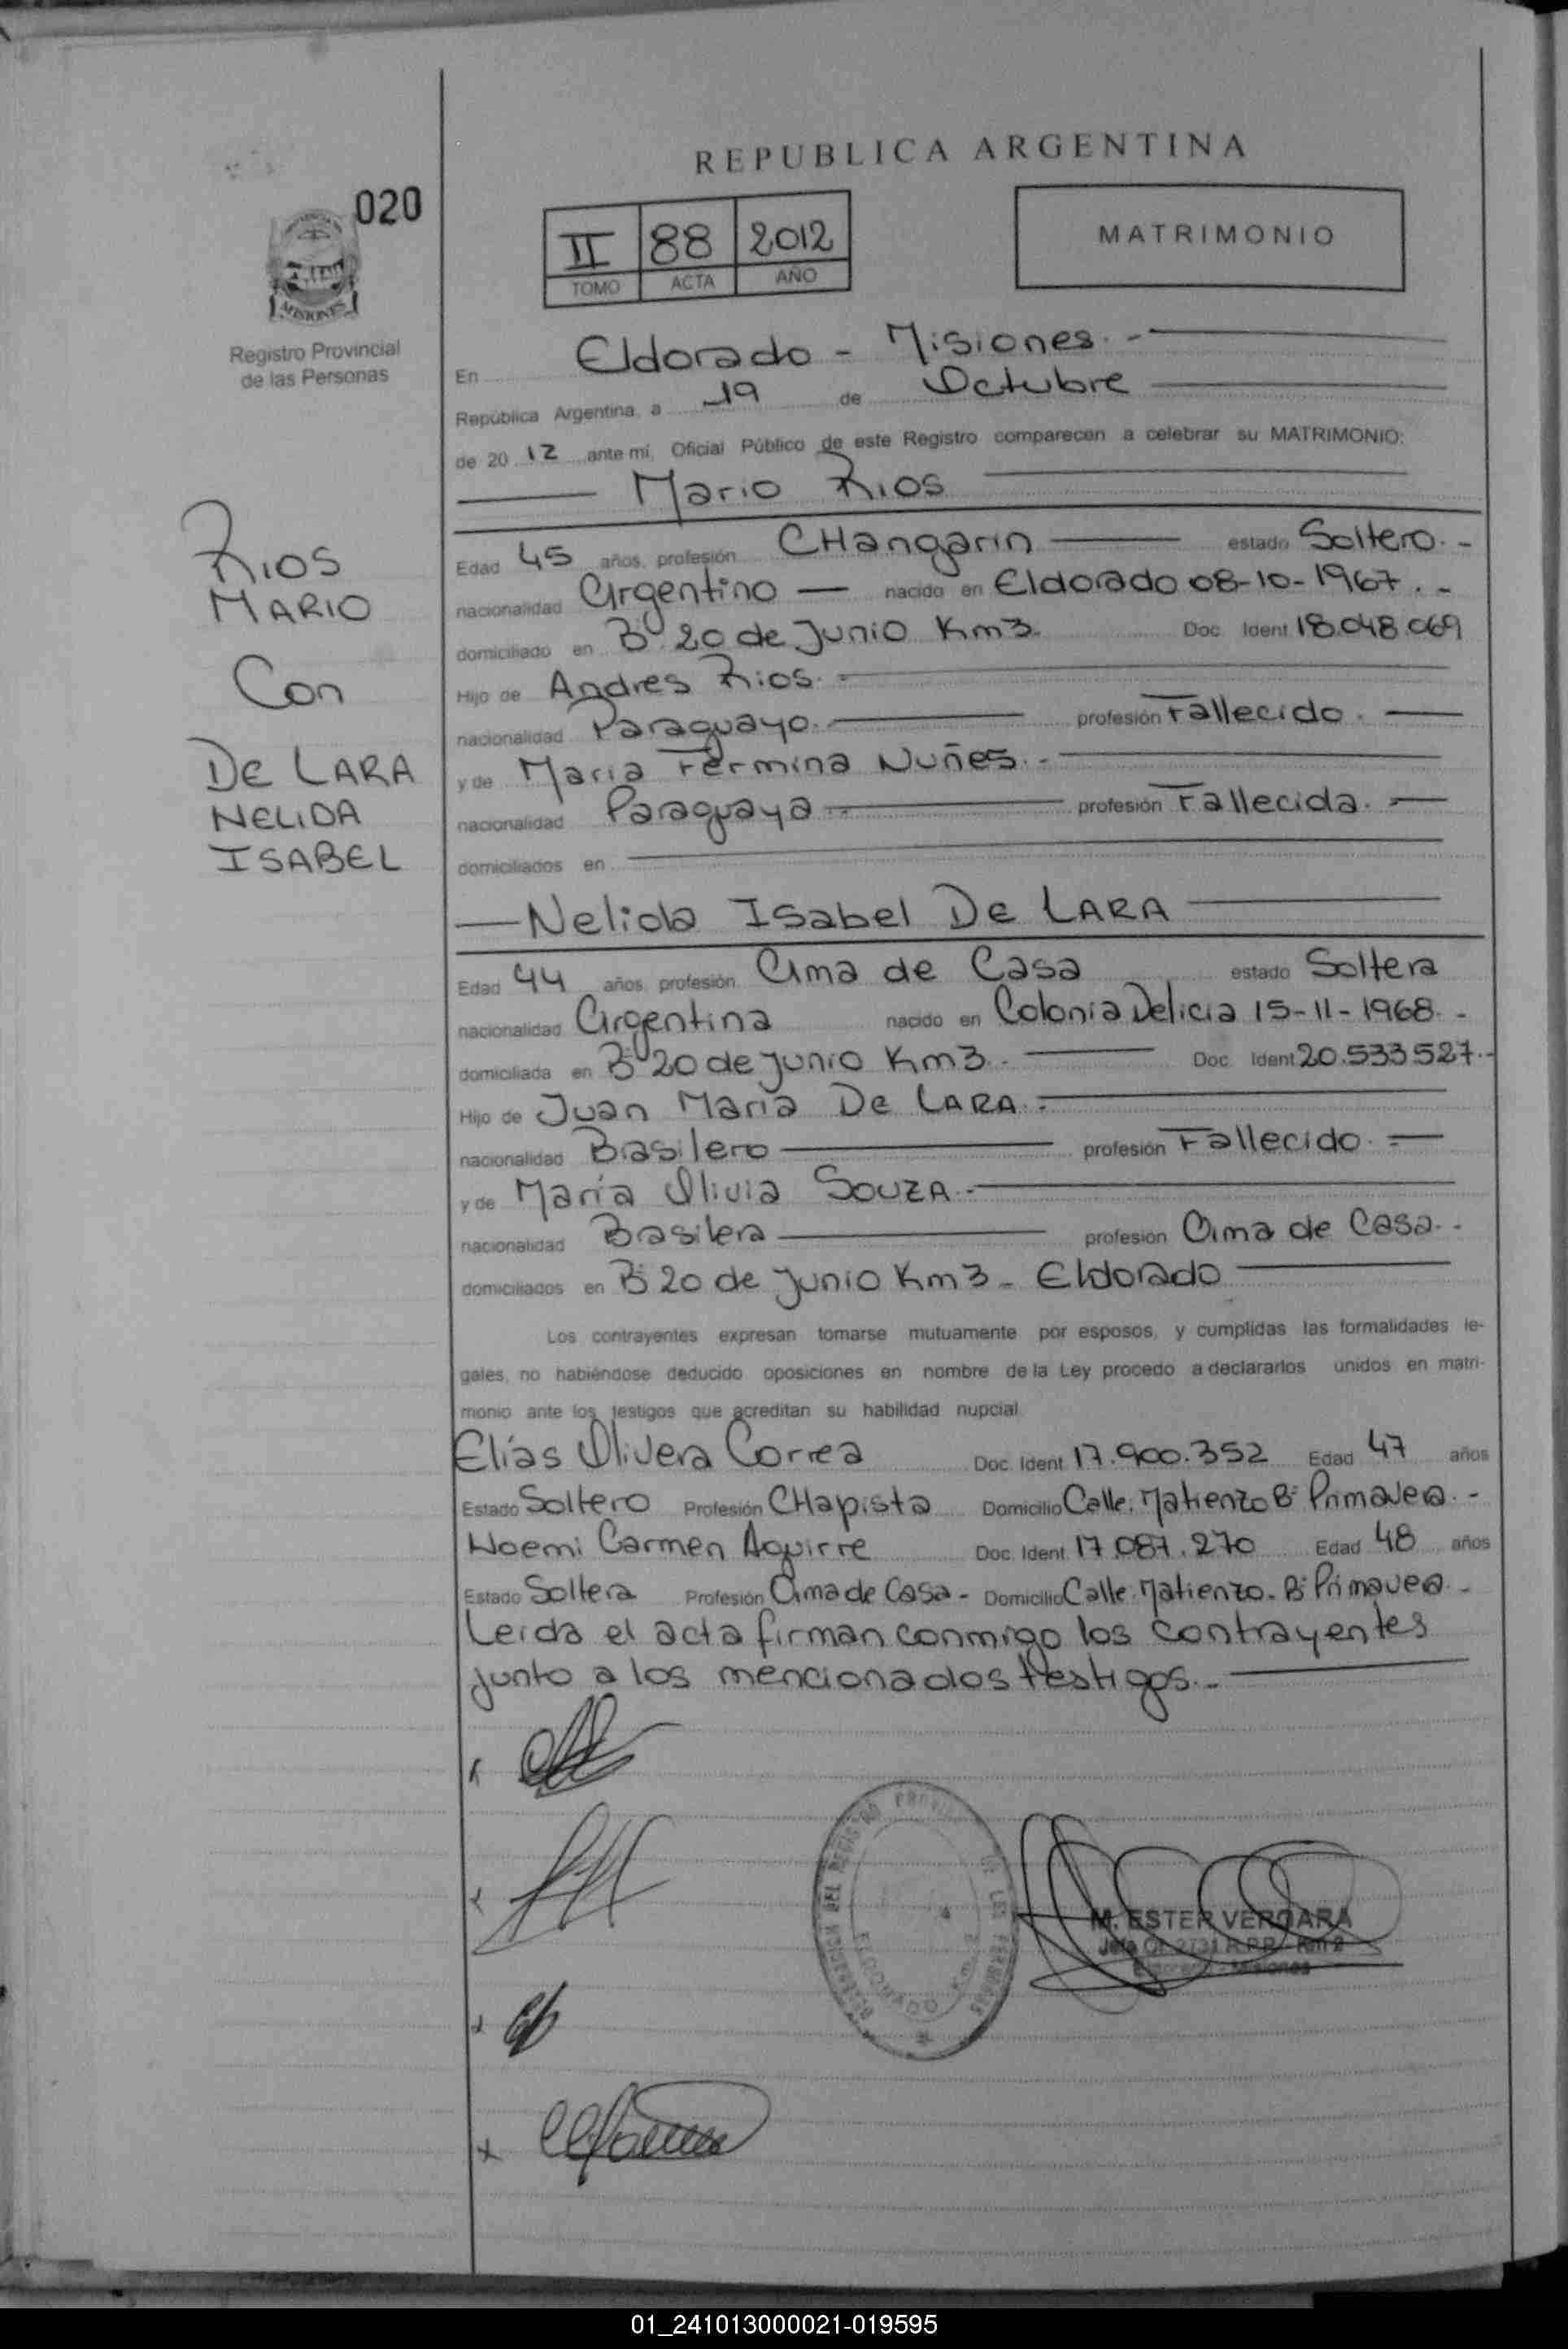 REPUBLICA ARGENTINA
020
II 88 2012
TOMO ACTA AÑO
MATRIMONIO
MISIONES
Registro Provincial
de las Personas
En Eldorado - Misiones. -
República Argentina, a 19 de Octubre
de 20 12 ante mí, Oficial Público de este Registro comparecen a celebrar su MATRIMONIO:
Mario Rios
RIOS
MARIO
Con
DE LARA
NELIDA
ISABEL
Edad 45 años, profesión CHangarin estado Soltero. -
nacionalidad Argentino — nacido en Eldorado 08-10-1967. -
domiciliado en Bº 20 de Junio Km3. Doc. Ident 18.048.069
Hijo de Andres Rios. -
nacionalidad Paraguayo. profesión Fallecido. -
y de Maria Fermina Nuñes. -
nacionalidad Paraguaya profesión Fallecida. -
domiciliados en
Nelida Isabel DE LARA
Edad 44 años, profesión Ama de Casa estado Soltera
nacionalidad Argentina nacido en Colonia Delicia 15-11-1968. -
domiciliada en Bº 20 de junio Km3. - Doc. Ident 20.533.527. -
Hijo de Juan Maria De LARA. -
nacionalidad Brasilero profesión Fallecido. -
y de María Olivia SOUZA. -
nacionalidad Brasilera profesión Ama de Casa. -
domiciliados en Bº 20 de junio Km3 - Eldorado
Los contrayentes expresan tomarse mutuamente por esposos, y cumplidas las formalidades le-
gales, no habiéndose deducido oposiciones en nombre de la Ley procedo a declararlos unidos en matri-
monio ante los testigos que acreditan su habilidad nupcial
Elías Olivera Correa Doc. Ident. 17.900.352 Edad 47 años
Estado Soltero Profesión CHapista Domicilio Calle: Matienzo Bº Primavera. -
Noemi Carmen Aguirre Doc. Ident. 17.087.270 Edad 48 años
Estado Soltera Profesión Ama de Casa - Domicilio Calle: Matienzo - Bº Primavera. -
Leida el acta firman conmigo los contrayentes
junto a los mencionados testigos. -
DEL REGISTRO PROVINCIAL DE LAS PERSONAS
ELDORADO Km. 2
M. ESTER VERGARA
Jefa Of. 2731 R.P.P. - Km 2
Eldorado - Misiones
01_241013000021-019595